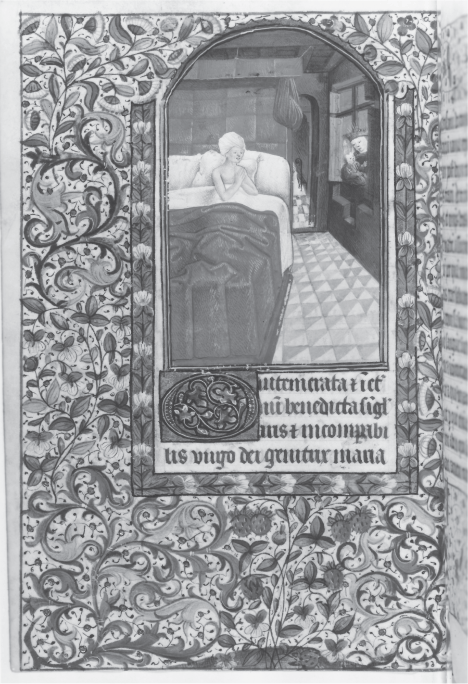 O intemerata ⁊ i et
nū benedicta sigl
aris ⁊ incompabi
lis virgo dei genitrix maria